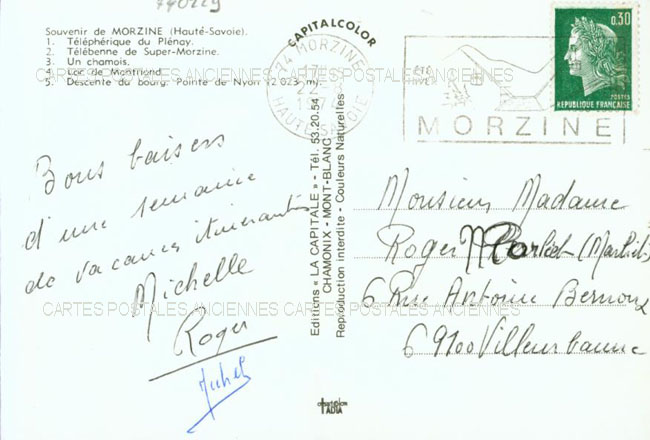 740229
Souvenir de MORZINE (Haute-Savoie).
1. Téléphérique du Plénay.
2. Télébenne de Super-Morzine.
3. Un chamois.
4. Lac de Montriond.
5. Descente du bourg. Pointe de Nyon (2 023 m).
CARTES POSTALES ANCIENNES CARTES POSTALES ANCIENNES
Bons baisers
d'une semaine
de vacances itinérantes
Michelle
Roger
Michel
CARTES POSTALES ANCIENNES CARTES POSTALES ANCIENNES
CAPITALCOLOR
Editions « LA CAPITALE » - Tél. 53.20.54
CHAMONIX - MONT-BLANC
Reproduction interdite - Couleurs Naturelles
74 MORZINE
HAUTE-SAVOIE
ÉTÉ
HIVER
MORZINE
0,30
POSTES
REPUBLIQUE FRANÇAISE
Monsieur Madame
Roger
6 Rue Antoine Bernoux
69100 Villeurbanne
ADIA